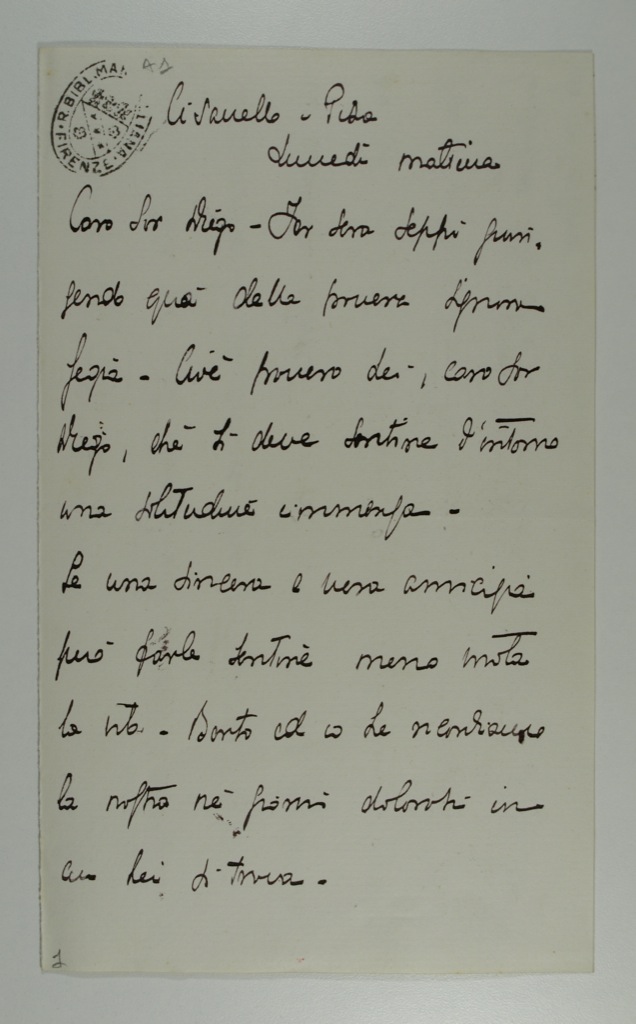 R. BIBL. MARUCELLIANA · FIRENZE ·
Cisanello - Pisa
Lunedì mattina
Caro Sor Diego - Ier sera seppi giun,
gendo quà della povera Signora
Gegia - Cive povero Lei, caro Sor
Diego, chè si deve sentire d'intorno
una solitudine immensa -
Se una sincera e vera amicizia
può farle sentire meno vuota
la vita - Banto ed io Le ricordiamo
la nostra nè giorni dolorosi in
cui Lei si trova -
1